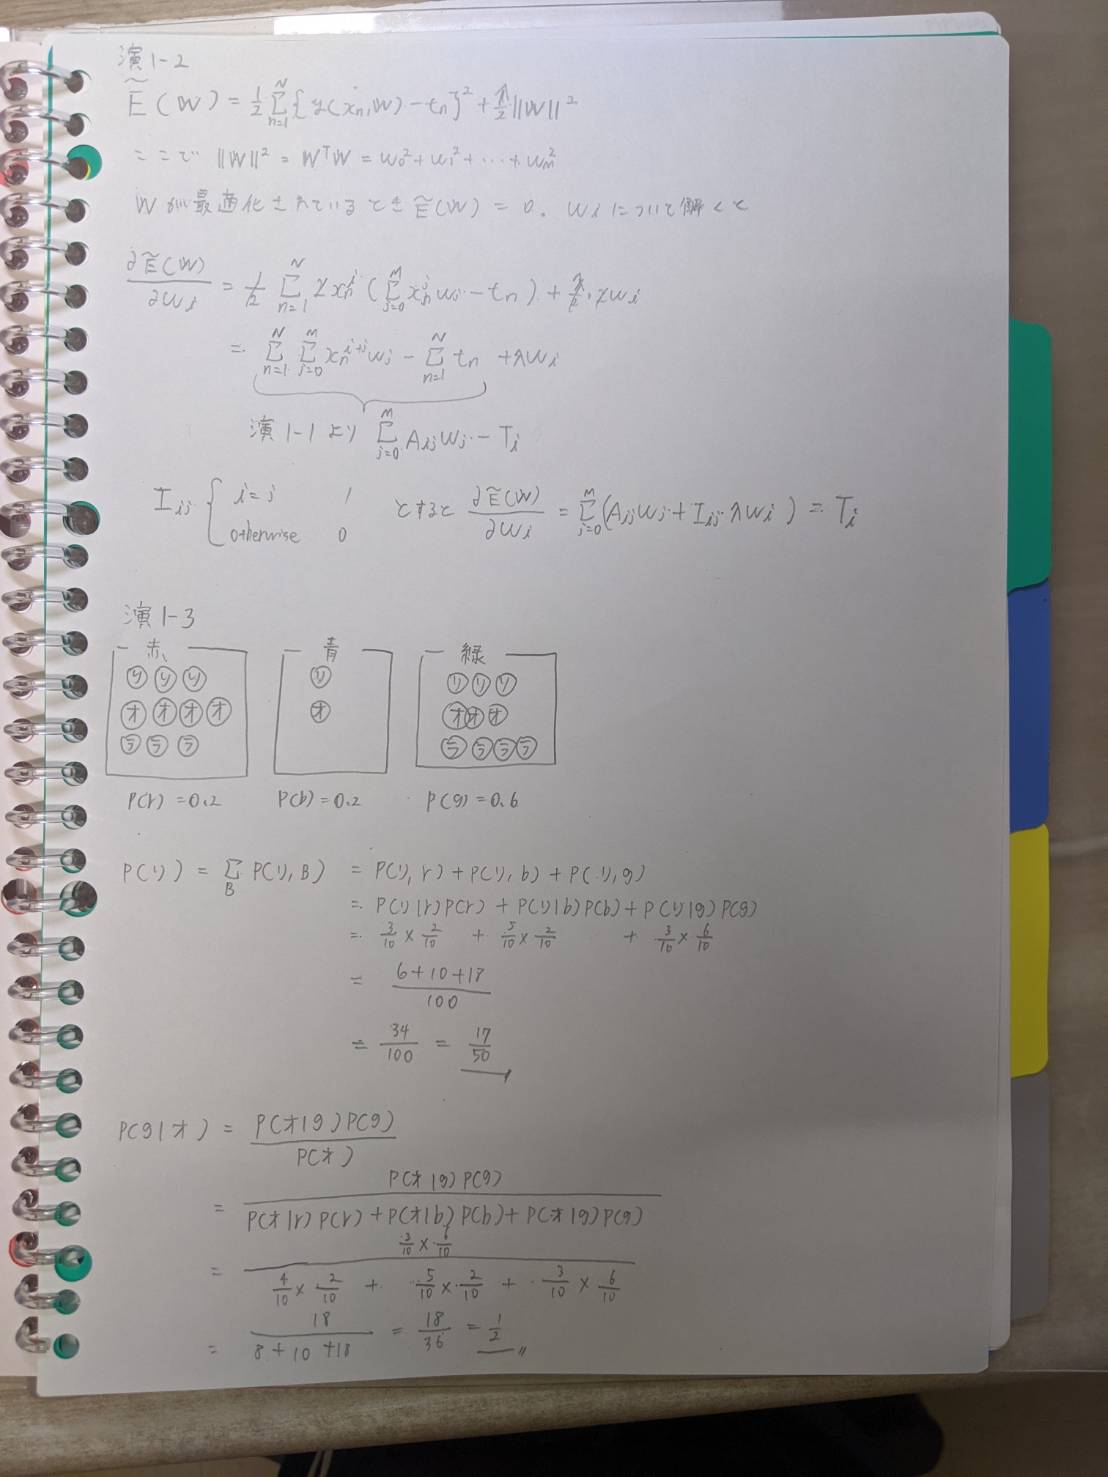 演1-2
Ẽ(W) = 1/2 Σ_{n=1}^{N} {y(x_n, W) - t_n}² + λ/2 ||W||²
ここで ||W||² = WᵀW = w₀² + w₁² + … + w_M²
Wが最適化されているとき Ẽ(W) = 0. w_i について解くと
∂Ẽ(W)/∂w_i = 1/2 Σ_{n=1}^{N} 2x_n^i (Σ_{j=0}^{M} x_n^j w_j - t_n) + λ/2・2w_i
= Σ_{n=1}^{N} Σ_{j=0}^{M} x_n^{i+j} w_j - Σ_{n=1}^{N} t_n + λw_i
演1-1より Σ_{j=0}^{M} A_{ij} w_j - T_i
I_{ij} { i=j 1
otherwise 0
とすると ∂Ẽ(W)/∂w_i = Σ_{j=0}^{M} (A_{ij} w_j + I_{ij} λw_i) = T_i
演1-3
赤 青 緑
リ リ リ リ リ リ リ
オ オ オ オ オ オ オ オ
ラ ラ ラ ラ ラ ラ ラ
P(r) = 0.2 P(b) = 0.2 P(g) = 0.6
P(リ) = Σ_B P(リ, B) = P(リ, r) + P(リ, b) + P(リ, g)
= P(リ|r)P(r) + P(リ|b)P(b) + P(リ|g)P(g)
= 3/10 × 2/10 + 5/10 × 2/10 + 3/10 × 6/10
= (6+10+18)/100
= 34/100 = 17/50
P(g|オ) = P(オ|g)P(g) / P(オ)
= P(オ|g)P(g) / (P(オ|r)P(r) + P(オ|b)P(b) + P(オ|g)P(g))
= (3/10 × 6/10) / (4/10 × 2/10 + 5/10 × 2/10 + 3/10 × 6/10)
= 18/(8+10+18) = 18/36 = 1/2